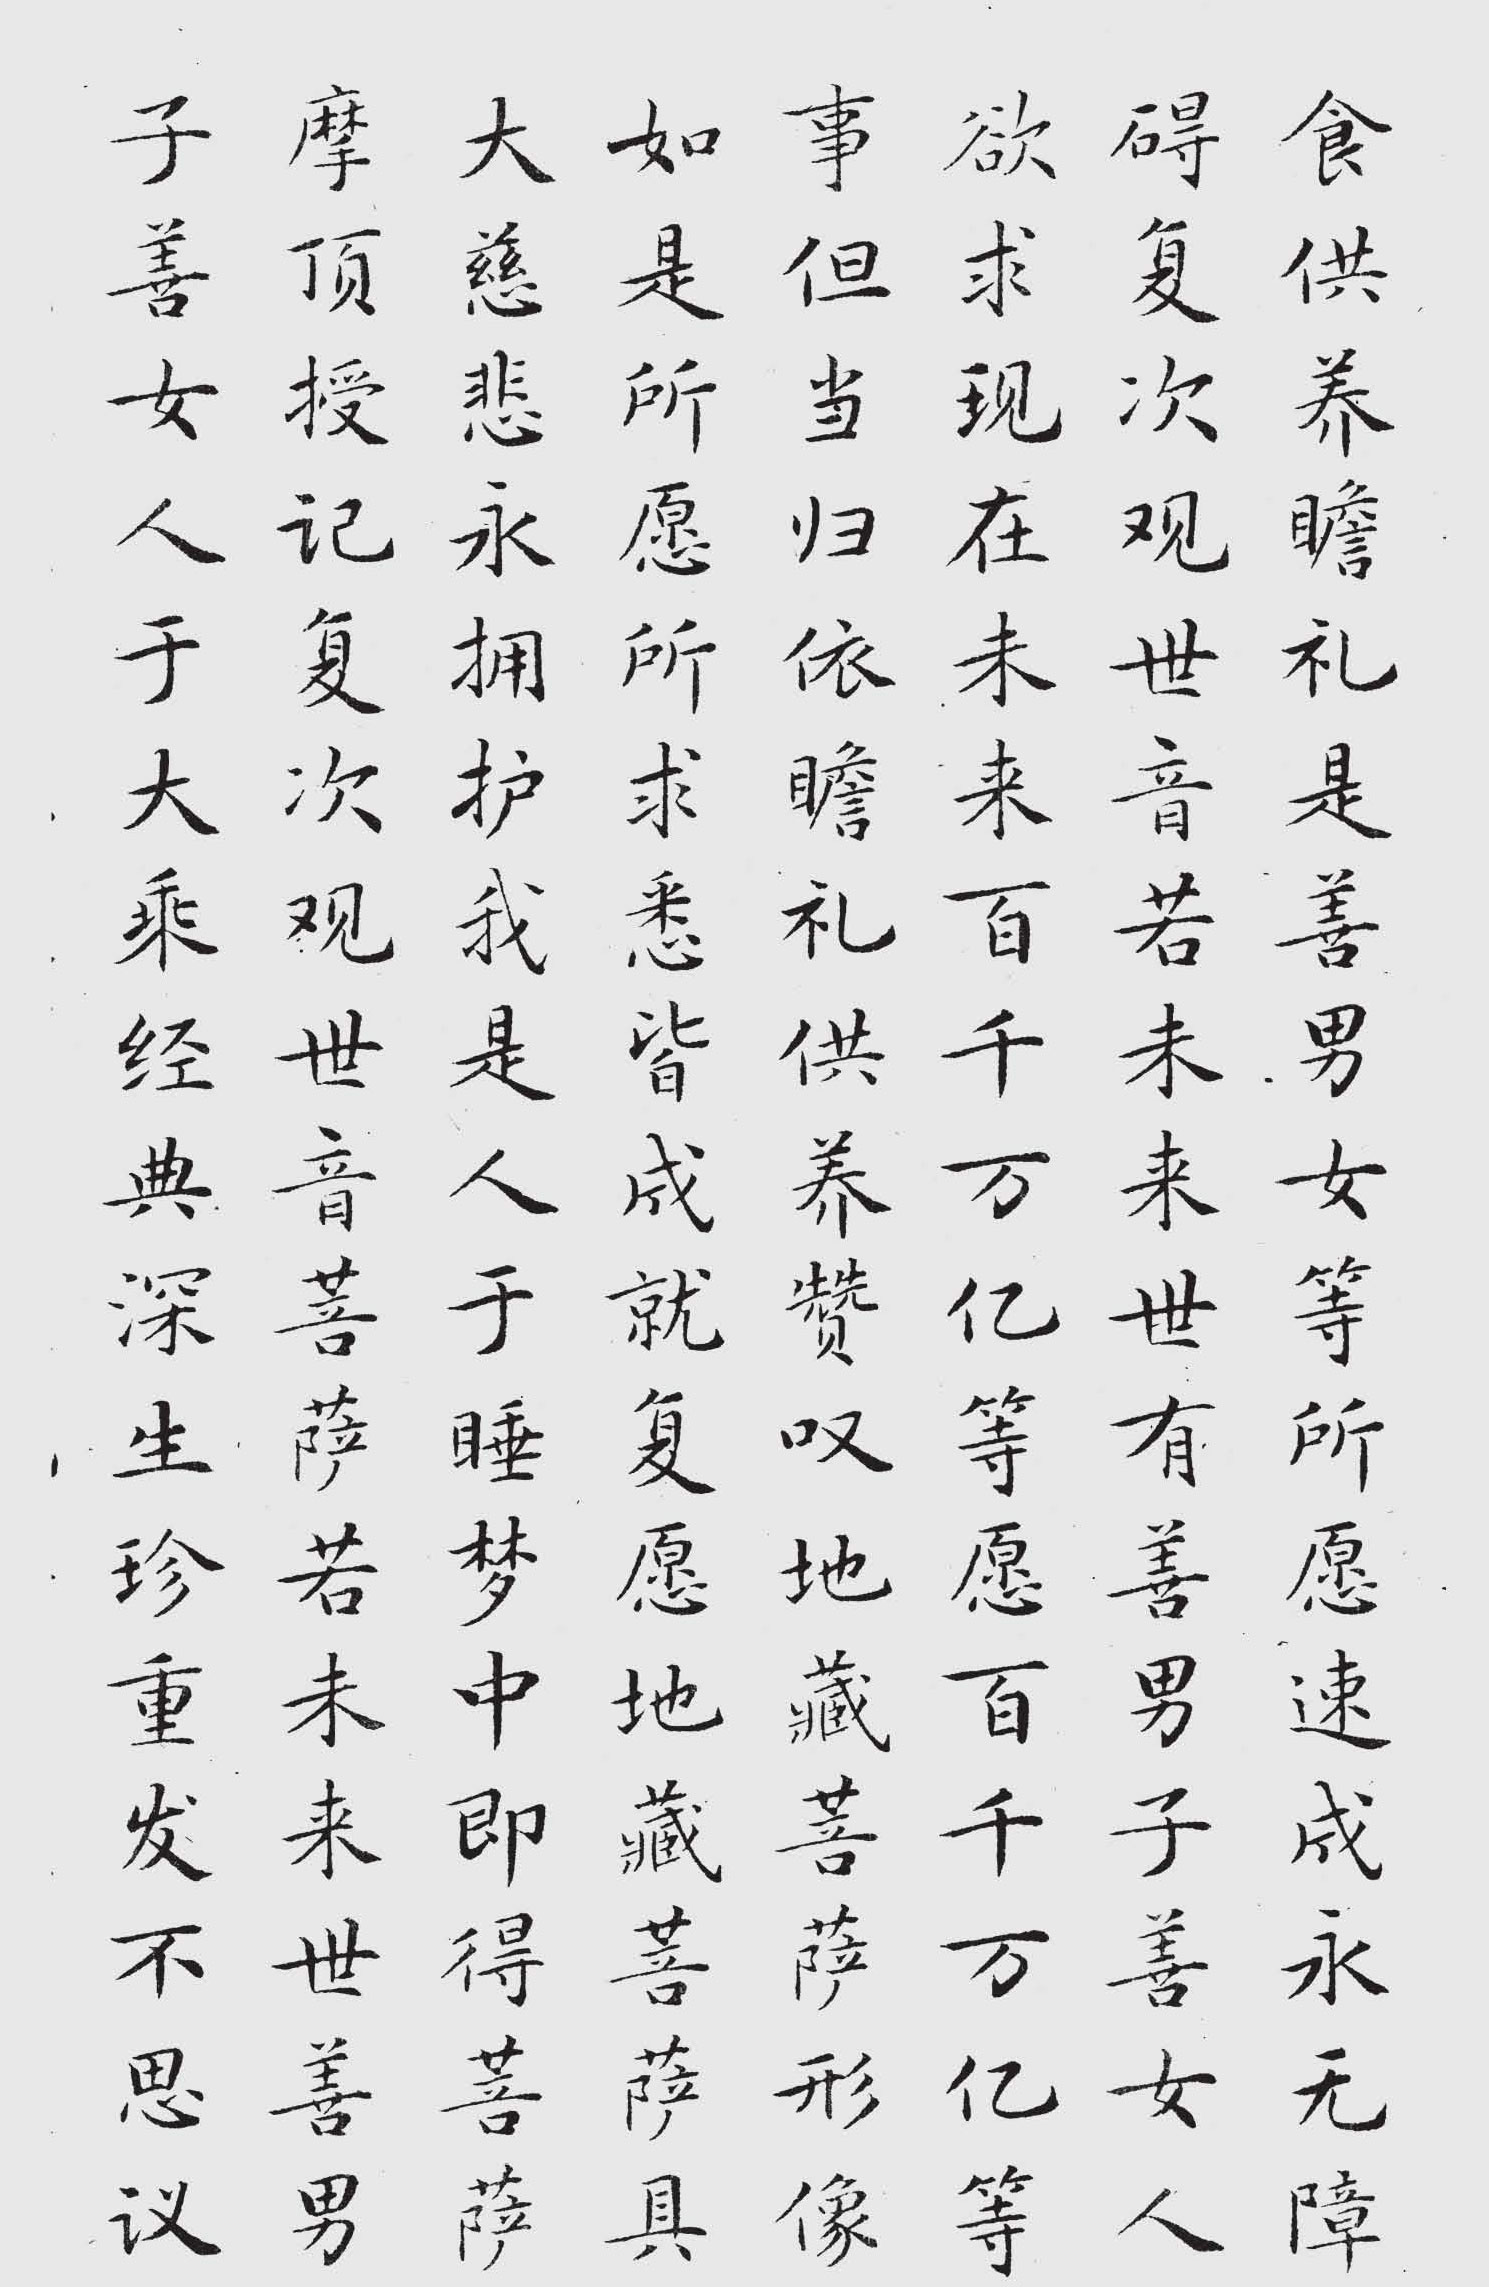 食供养瞻礼是善男女等所愿速成永无障
碍复次观世音若未来世有善男子善女人
欲求现在未来百千万亿等愿百千万亿等
事但当归依瞻礼供养赞叹地藏菩萨形像
如是所愿所求悉皆成就复愿地藏菩萨具
大慈悲永拥护我是人于睡梦中即得菩萨
摩顶授记复次观世音菩萨若未来世善男
子善女人于大乘经典深生珍重发不思议